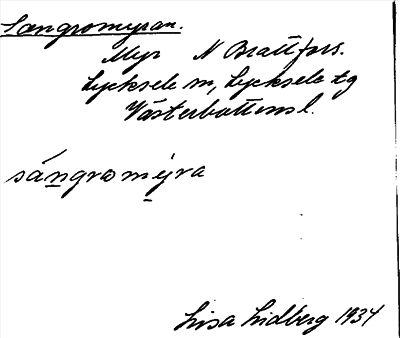 Sangromyran.
Myr N Brattfors.
Lycksele sn, Lycksele tg
Västerbottens l.
sángromýra
Lisa Lidberg 1934